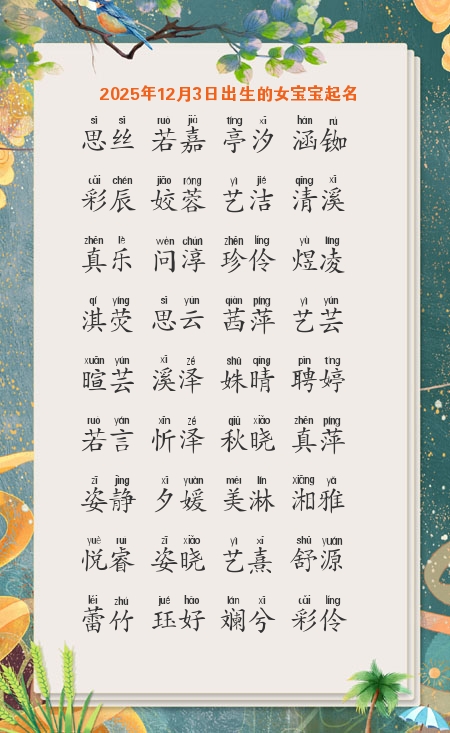 2025年12月3日出生的女宝宝起名
sī sī ruò jiā tíng xī hán rú
思丝 若嘉 亭汐 涵铷
cǎi chén jiāo róng yì jié qīng xī
彩辰 姣蓉 艺洁 清溪
zhēn lè wèn chún zhēn líng yù líng
真乐 问淳 珍伶 煜凌
qí yíng sī yún qiàn píng yì yún
淇荧 思云 茜萍 艺芸
xuān yún xī zé shū qíng pìn tíng
暄芸 溪泽 姝晴 聘婷
ruò yán xīn zé qiū xiǎo zhēn píng
若言 忻泽 秋晓 真萍
zī jìng xī yuàn měi lín xiāng yǎ
姿静 夕媛 美淋 湘雅
yuè ruì zī xiǎo yì xī shū yuán
悦睿 姿晓 艺熹 舒源
lěi zhú jué hǎo lán xī cǎi líng
蕾竹 珏好 斓兮 彩伶